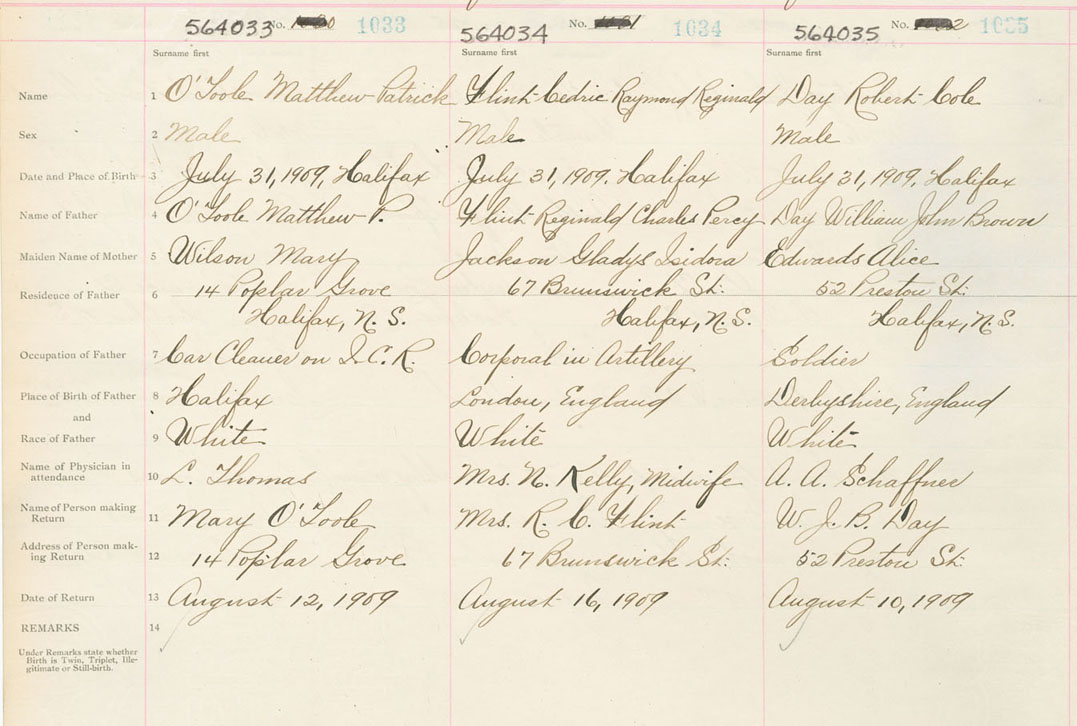 564033 No. 1033 564034 No. 1034 564035 No. 1035
Surname first Surname first Surname first
Name 1 O'Toole Matthew Patrick Flint Cedric Raymond Reginald Day Robert Cole
Sex 2 Male Male Male
Date and Place of Birth 3 July 31, 1909, Halifax July 31, 1909. Halifax July 31, 1909. Halifax
Name of Father 4 O'Toole Matthew P. Flint Reginald Charles Percy Day William John Brown
Maiden Name of Mother 5 Wilson Mary Jackson Gladys Isidora Edwards Alice
Residence of Father 6 14 Poplar Grove 67 Brunswick St. 52 Preston St.
Halifax, N.S. Halifax, N.S. Halifax, N.S.
Occupation of Father 7 Car Cleaner on I.C.R. Corporal in Artillery Soldier
Place of Birth of Father 8 Halifax London, England Derbyshire, England
and
Race of Father 9 White White White
Name of Physician in
attendance 10 L. Thomas Mrs. N. Kelly, Midwife A. A. Schaffner
Name of Person making
Return 11 Mary O'Toole Mrs. R. C. Flint W. J. B. Day
Address of Person mak-
ing Return 12 14 Poplar Grove 67 Brunswick St. 52 Preston St.
Date of Return 13 August 12, 1909 August 16, 1909 August 10, 1909
REMARKS 14
Under Remarks state whether
Birth is Twin, Triplet, Ille-
gitimate or Still-birth.